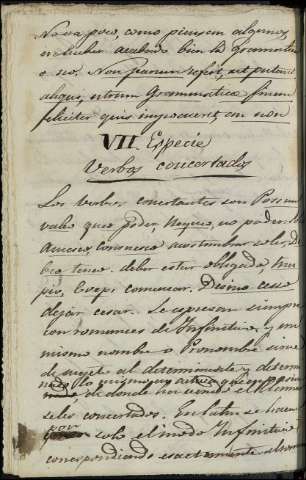 No va poco, como piensan algunos,
en haber acabado bien la gramatica
o no. Non parum refert, ut putant
aliqui, utrum Grammaticæ finem
feliciter quis imposuerit an non
VII. Especie
Verbos concertados
Los verbos concertantes son Possum
vales que poder, Nequeo, no poder,
Assuesco, consuesco acostumbrar soler, De
beo tener. deber estar obligado, Inci
pio, Coepi comenzar. Desino cesar
dejar cesar. Se expresan siempre
con romances de Infinitivo, y un
mismo nombre o Pronombre sirve
de sujeto al determinante y determi
nado
se de donde han venido el llamar
seles concertados. En latin se hacen
por solo el modo Infinitivo
correspondiendo exactamente